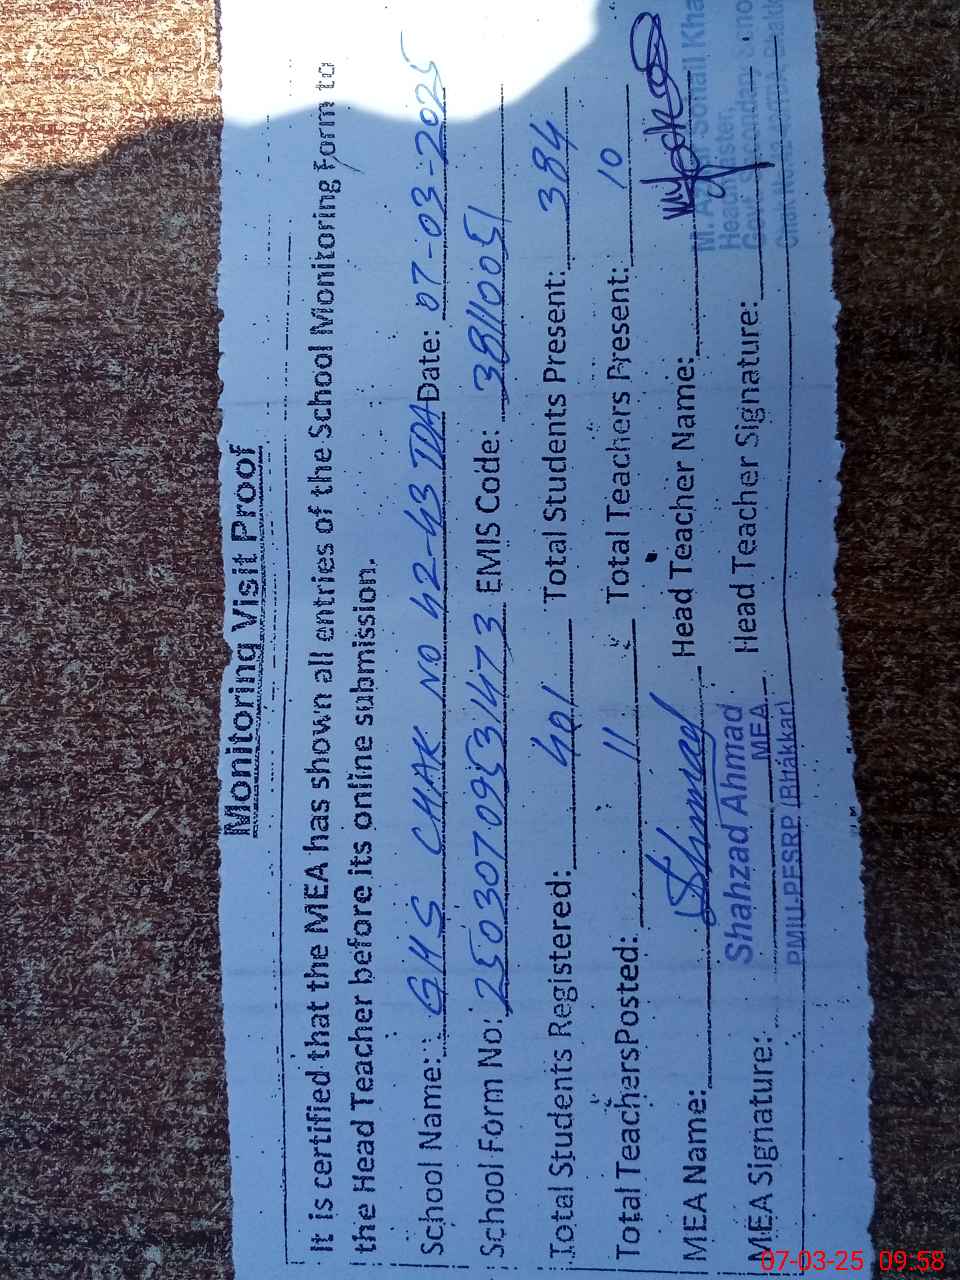 Monitoring Visit Proof
It is certified that the MEA has shown all entries of the School Monitoring Form to
the Head Teacher before its online submission.
School Name: GHS CHAK NO 42-43 TDA Date: 07-03-2025
School Form No: 25030709531473 EMIS Code: 38110051
Total Students Registered: 401 Total Students Present: 384
Total TeachersPosted: 11 Total Teachers Present: 10
MEA Name: Head Teacher Name:
Shahzad Ahmad M. Sohail
MEA Headmaster,
MEA Signature: Head Teacher Signature:
PMIU-PESRP (Bhakkar) Govt. Secondary
07-03-25 09:58